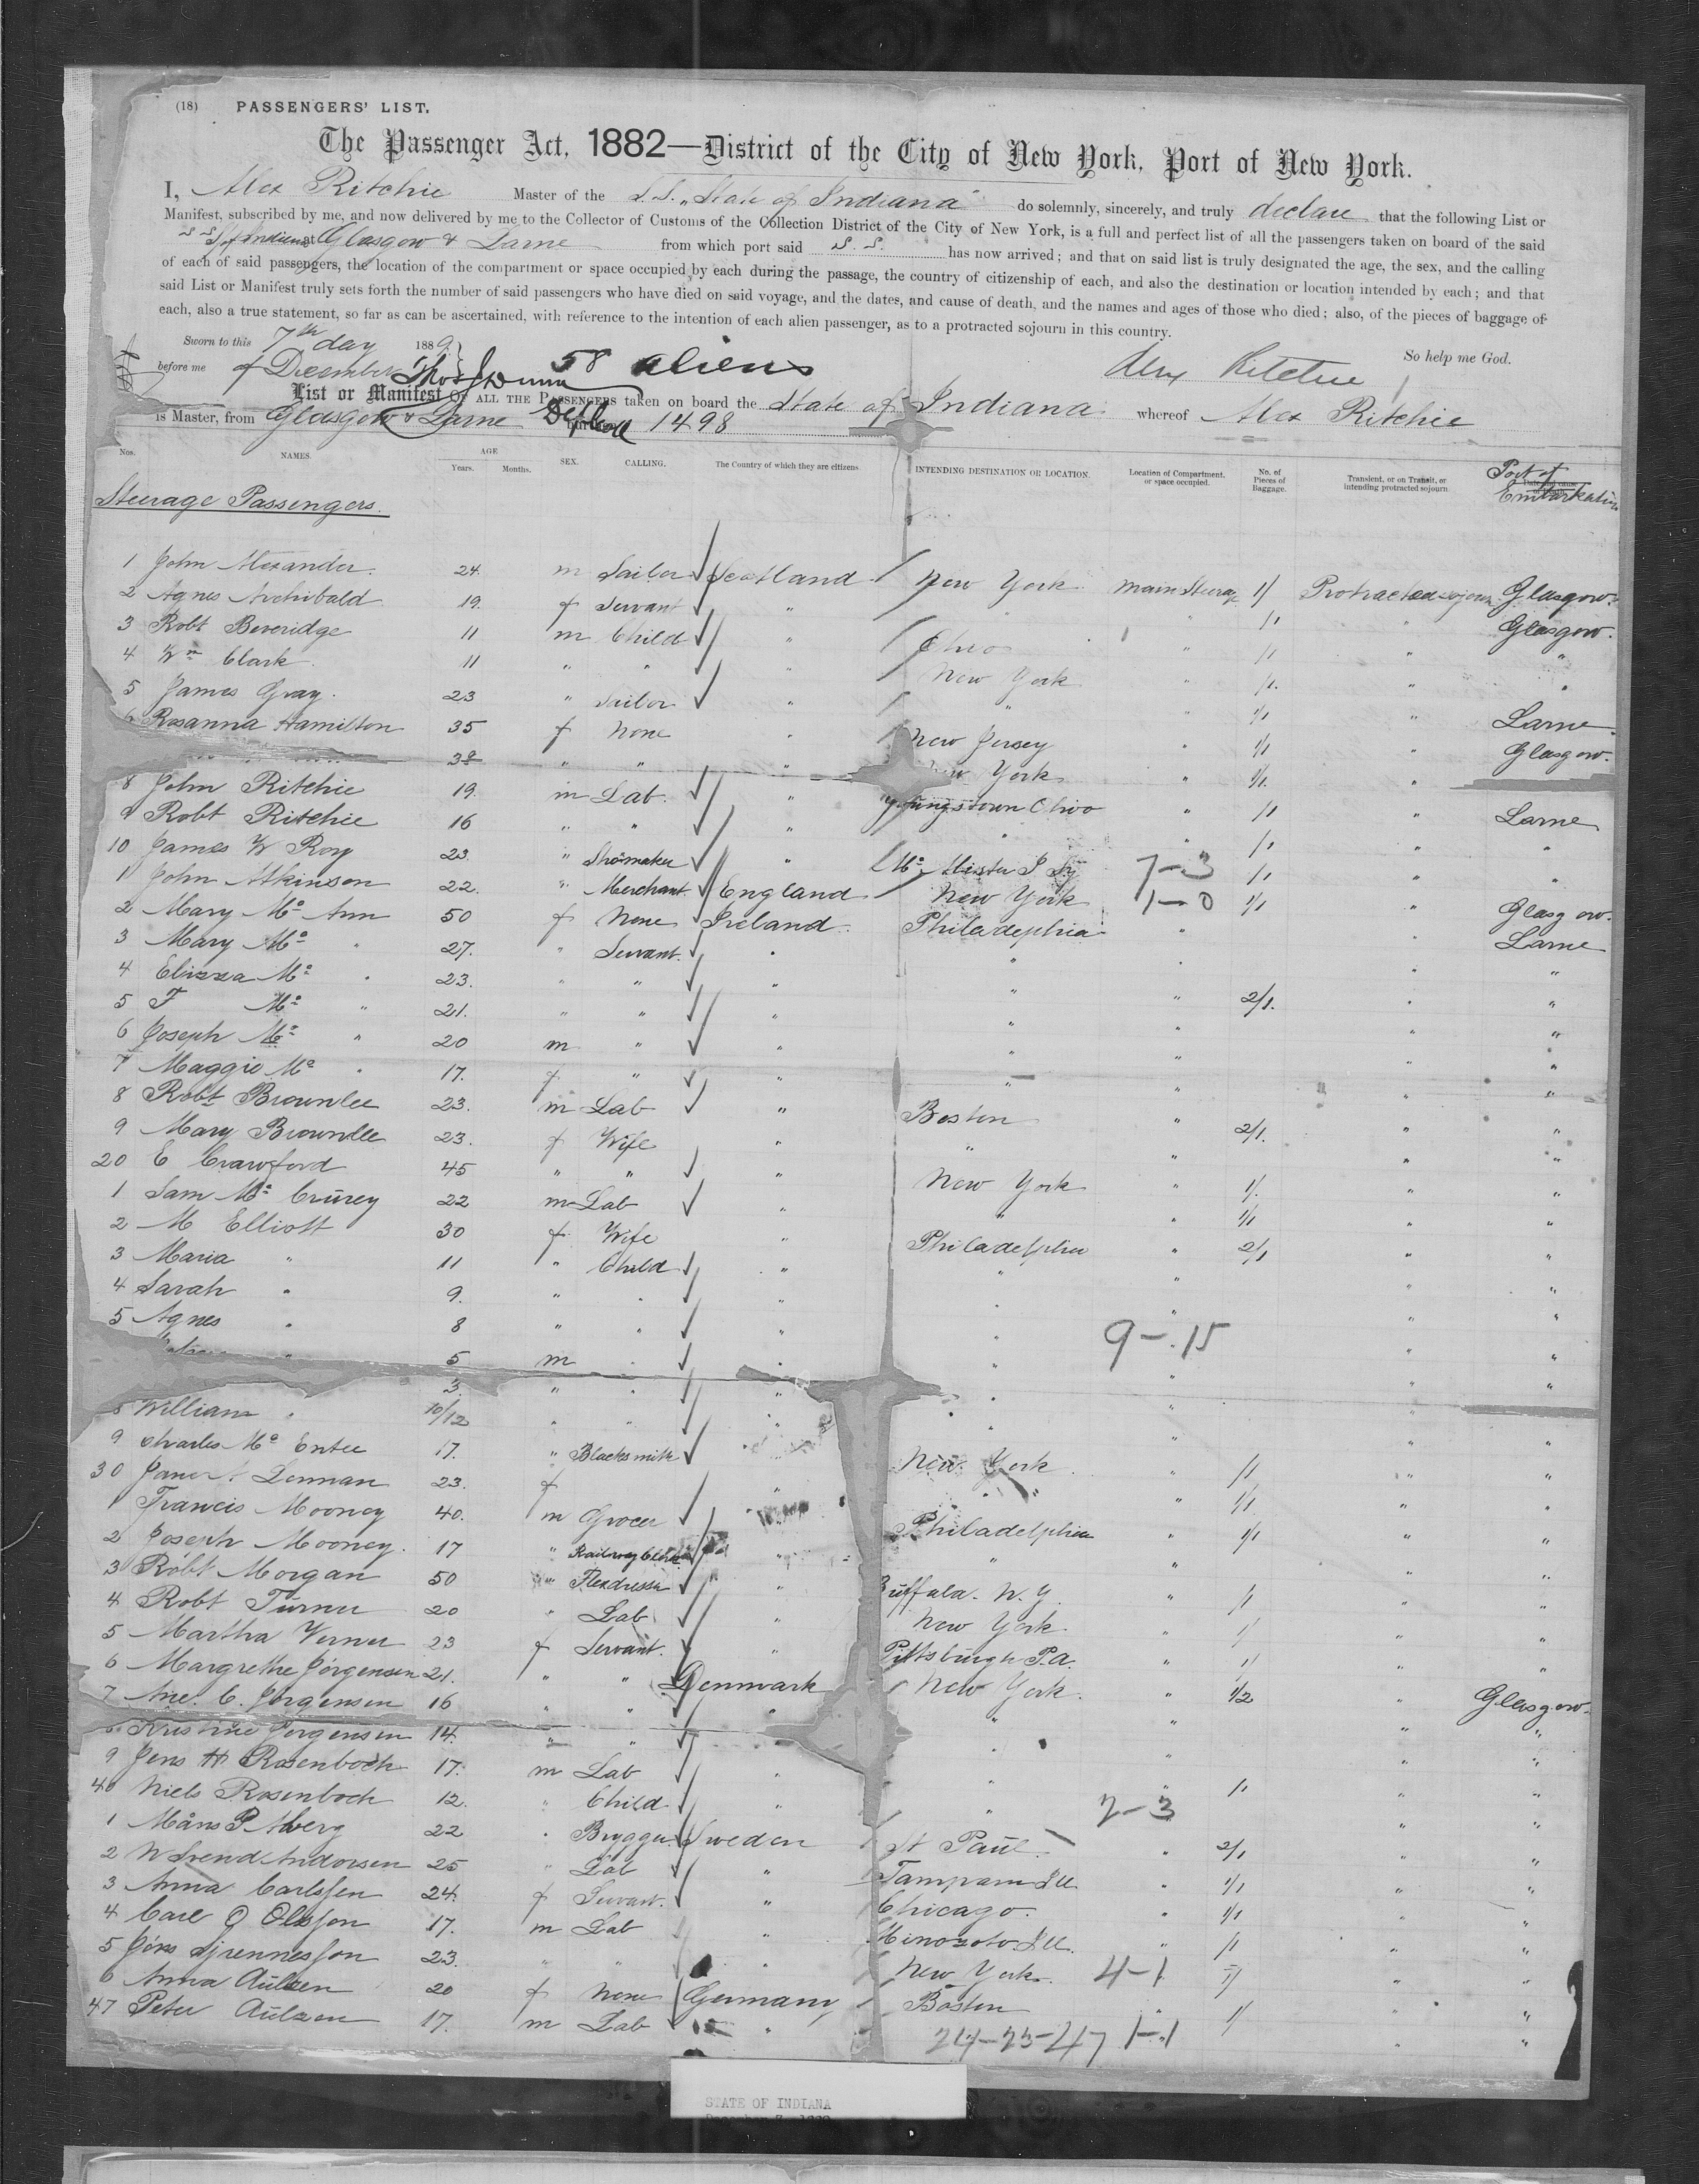 (18) PASSENGERS' LIST.
The Passenger Act, 1882—District of the City of New York, Port of New York.
I, Alex Ritchie Master of the S.S. "State of Indiana" do solemnly, sincerely, and truly declare that the following List or
Manifest, subscribed by me, and now delivered by me to the Collector of Customs of the Collection District of the City of New York, is a full and perfect list of all the passengers taken on board of the said
Glasgow & Larne from which port said S. S. has now arrived; and that on said list is truly designated the age, the sex, and the calling
of each of said passengers, the location of the compartment or space occupied by each during the passage, the country of citizenship of each, and also the destination or location intended by each; and that
said List or Manifest truly sets forth the number of said passengers who have died on said voyage, and the dates, and cause of death, and the names and ages of those who died; also, of the pieces of baggage of
each, also a true statement, so far as can be ascertained, with reference to the intention of each alien passenger, as to a protracted sojourn in this country.
Sworn to this 7th day 1889 So help me God.
before me of December 58 aliens Alex Ritchie
List or Manifest OF ALL THE PASSENGERS taken on board the State of Indiana whereof Alex Ritchie
is Master, from Glasgow & Larne 1498
Nos. NAMES. AGE Years. Months. SEX. CALLING. The Country of which they are citizens. INTENDING DESTINATION OR LOCATION. Location of Compartment, or space occupied. No. of Pieces of Baggage. Transient, or on Transit, or intending protracted sojourn Port of Embarkation
Steerage Passengers.
1 John Alexander. 24 m Sailor Scotland New York Main Steerage 1/1 Protracted sojourn Glasgow.
2 Agnes Archibald 19 f Servant " " " 1/1 " Glasgow.
3 Robt Beveridge 11 m Child " Ohio " 1/1 " "
4 Wm Clark 11 " " " New York " 1/1 " "
5 James Gray. 23 " Sailor " " " 1/1 " Larne
6 Rosanna Hamilton 35 f None " New Jersey " 1/1 " Glasgow.
38 " " " New York " 1/1 "
8 John Ritchie 19 m Lab. " Youngstown Ohio " 1/1 " Larne
9 Robt Ritchie 16 " " " " " 1/1 " "
10 James W Roy 23 " Shomaker " 7-3 1/1 " "
1 John Atkinson 22 " Merchant England New York 1-0 1/1 " Glasgow.
2 Mary Mc Ann 50 f None Ireland Philadephia " " Larne
3 Mary Mc " 27 " Servant. " " " " "
4 Elizza Mc " 23 " " " " " 2/1 " "
5 T Mc " 21 " " " " " " "
6 Joseph Mc " 20 m " " " " " "
7 Maggie Mc " 17 f " " " " " "
8 Robt Brownlee 23 m Lab " Boston " 2/1 " "
9 Mary Brownlee 23 f Wife " " " " "
20 E Crawford 45 " " " New York " 1/1 " "
1 Sam Mc Crurey 22 m Lab " " " 1/1 " "
2 M Elliott 30 f Wife " Philadelphia " 2/1 " "
3 Maria " 11 " Child " " " " "
4 Sarah " 9 " " " " " " "
5 Agnes " 8 " " " " 9-15 " "
" 5 m " " " " " "
3 " " " " " " "
8 William " 10/12 " " " " " " "
9 Charles Mc Entee 17 " Blacksmith New York " 1/1 " "
30 Lennan 23 f " " " 1/1 " "
1 Francis Mooney 40 m Grocer Philadelphia " 1/1 " "
2 Joseph Mooney. 17 " Railway Clerk " " " " "
3 Robt Morgan 50 " Flaxdresser " Buffala. N.Y. " 1/1 " "
4 Robt Turner 20 " Lab " New York " 1/ " "
5 Martha Verner 23 f Servant. " Pittsburgh P.a. " 1/ " "
6 Margrethe Jörgensen 21. " " Denmark New York. " 1/2 " Glasgow.
7 Ane. C. Jörgensen 16 " " " " " " "
8 Kristine Jorgensen 14 " " " " " " "
9 Jens H Rosenboch 17 m Lab " " " 1/1 " "
40 Niels Rosenboch 12 " Child " " 2-3 " "
1 Måns P Åberg 22 " Brygger Sweden St Paul. " 2/1 " "
2 N Svend Andorsen 25 " Lab " Tampam Ill " 1/1 " "
3 Anna Carlssen 24 f Servant. " Chicago. " 1/1 " "
4 Carl O Olsson 17. m Lab " " 1/1 " "
5 Jöns 23 " " " New York. 4-1 1/ " "
6 Anna Aulzen 20 f None Germany Boston " 1/ " "
47 Peter Aulzen 17. m Lab " 24-23-47 1-1 " "
STATE OF INDIANA